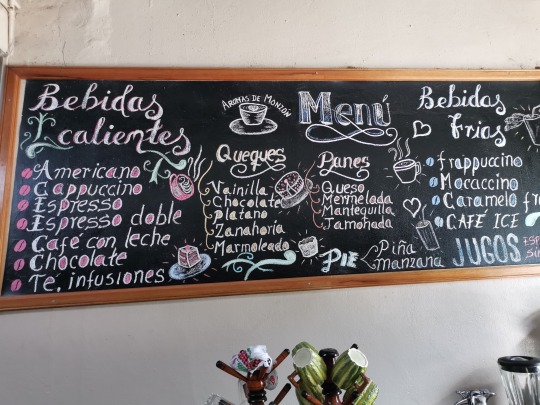 Bebidas
calientes
Americano
Cappuccino
Espresso
Espresso doble
Café con leche
Chocolate
Te, infusiones
AROMAS DE MONZÓN
Menú
Queques
Vainilla
Chocolate
platano
Zanahoria
Marmoleado
Panes
Queso
Mermelada
Mantequilla
Jamonada
PIE
Piña
manzana
Bebidas
frias
frappuccino
Mocaccino
Caramelo
CAFÉ ICE
JUGOS